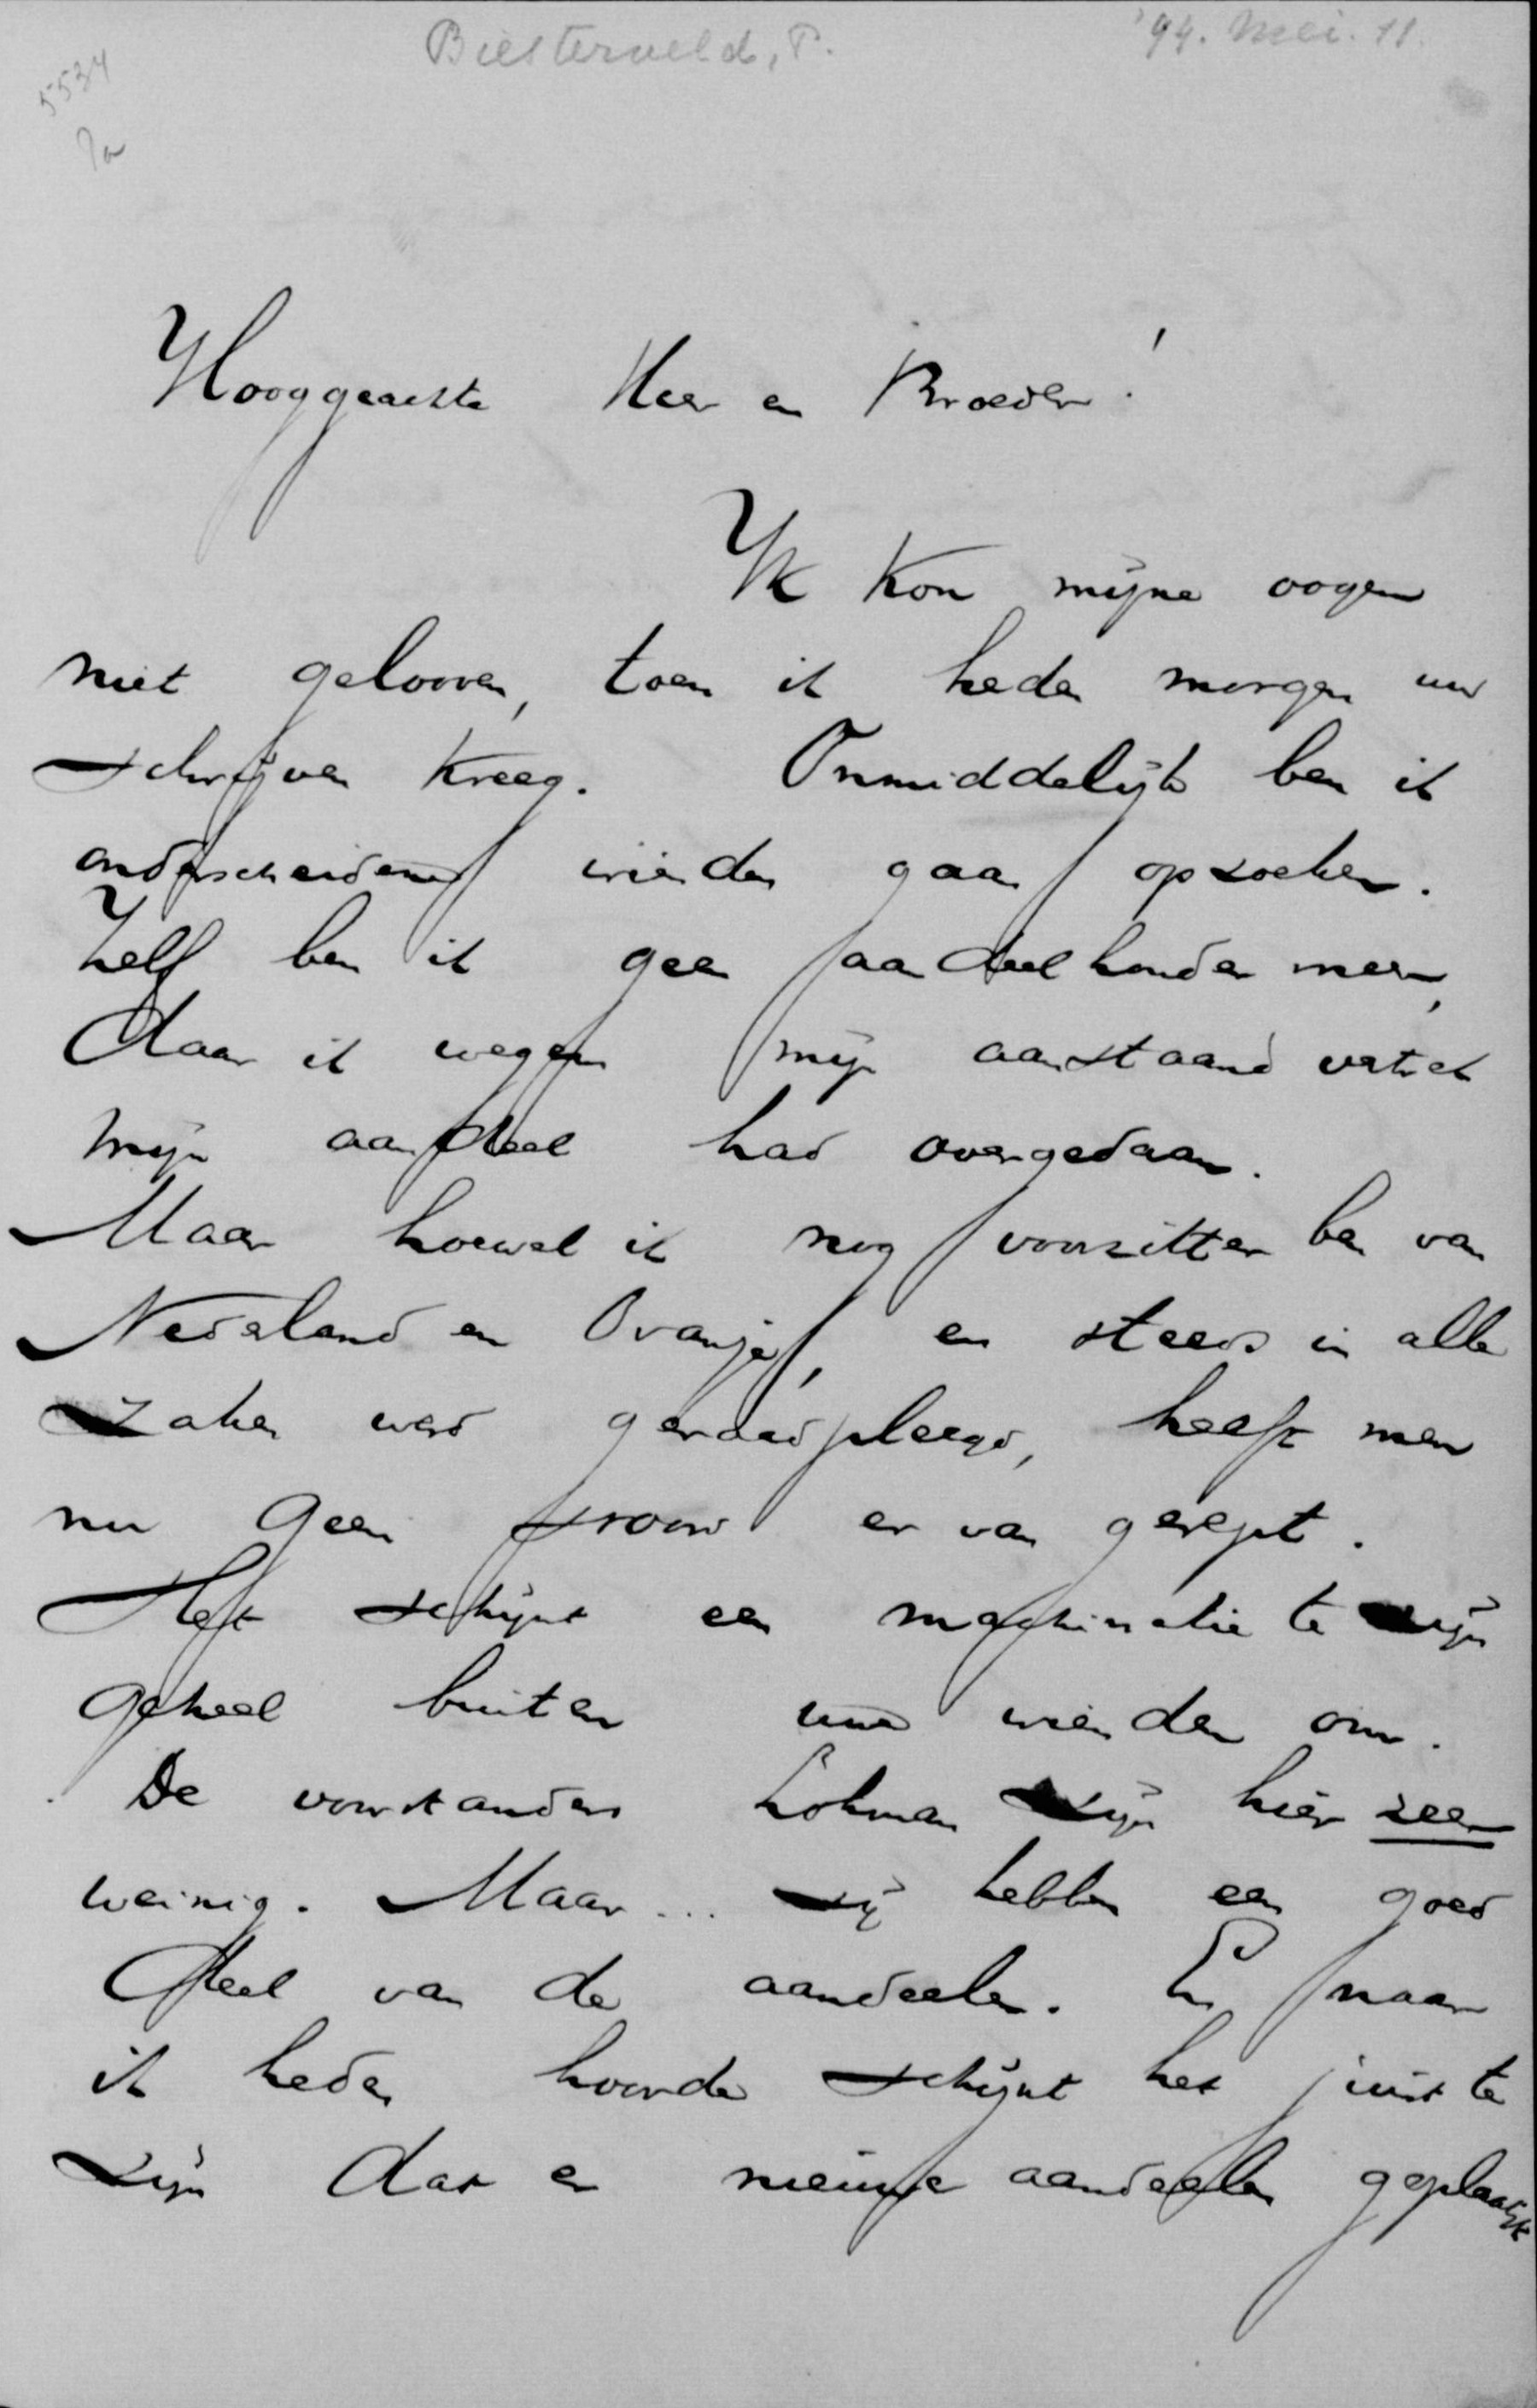 Biesterveld, P.
'94. Mei. 11.
5534
Hooggeachte Heer en Broeder!
Ik kon mijne oogen
niet gelooven, toen ik heden morgen uw
schrijven kreeg. Onmiddelijk ben ik
onderscheidene vrienden gaan opzoeken.
Zelf ben ik geen aandeelhouder meer,
daar ik wegens mijn aanstaand vertrek
mijn aandeel had overgedaan.
Maar hoewel ik nog voorzitter ben van
Nederland en Oranje, en steeds in alle
zaken werd geraadpleegd, heeft men
nu geen woord er van gerept.
Het schijnt een machinatie te zijn
geheel buiten uwe vrienden om.
De voorstanders Lohman zijn hier zeer
weinig. Maar... zij hebben een goed
deel van de aandeelen. En naar
ik heden hoorde schijnt het juist te
zijn dat er nieuwe aandeelen geplaatst